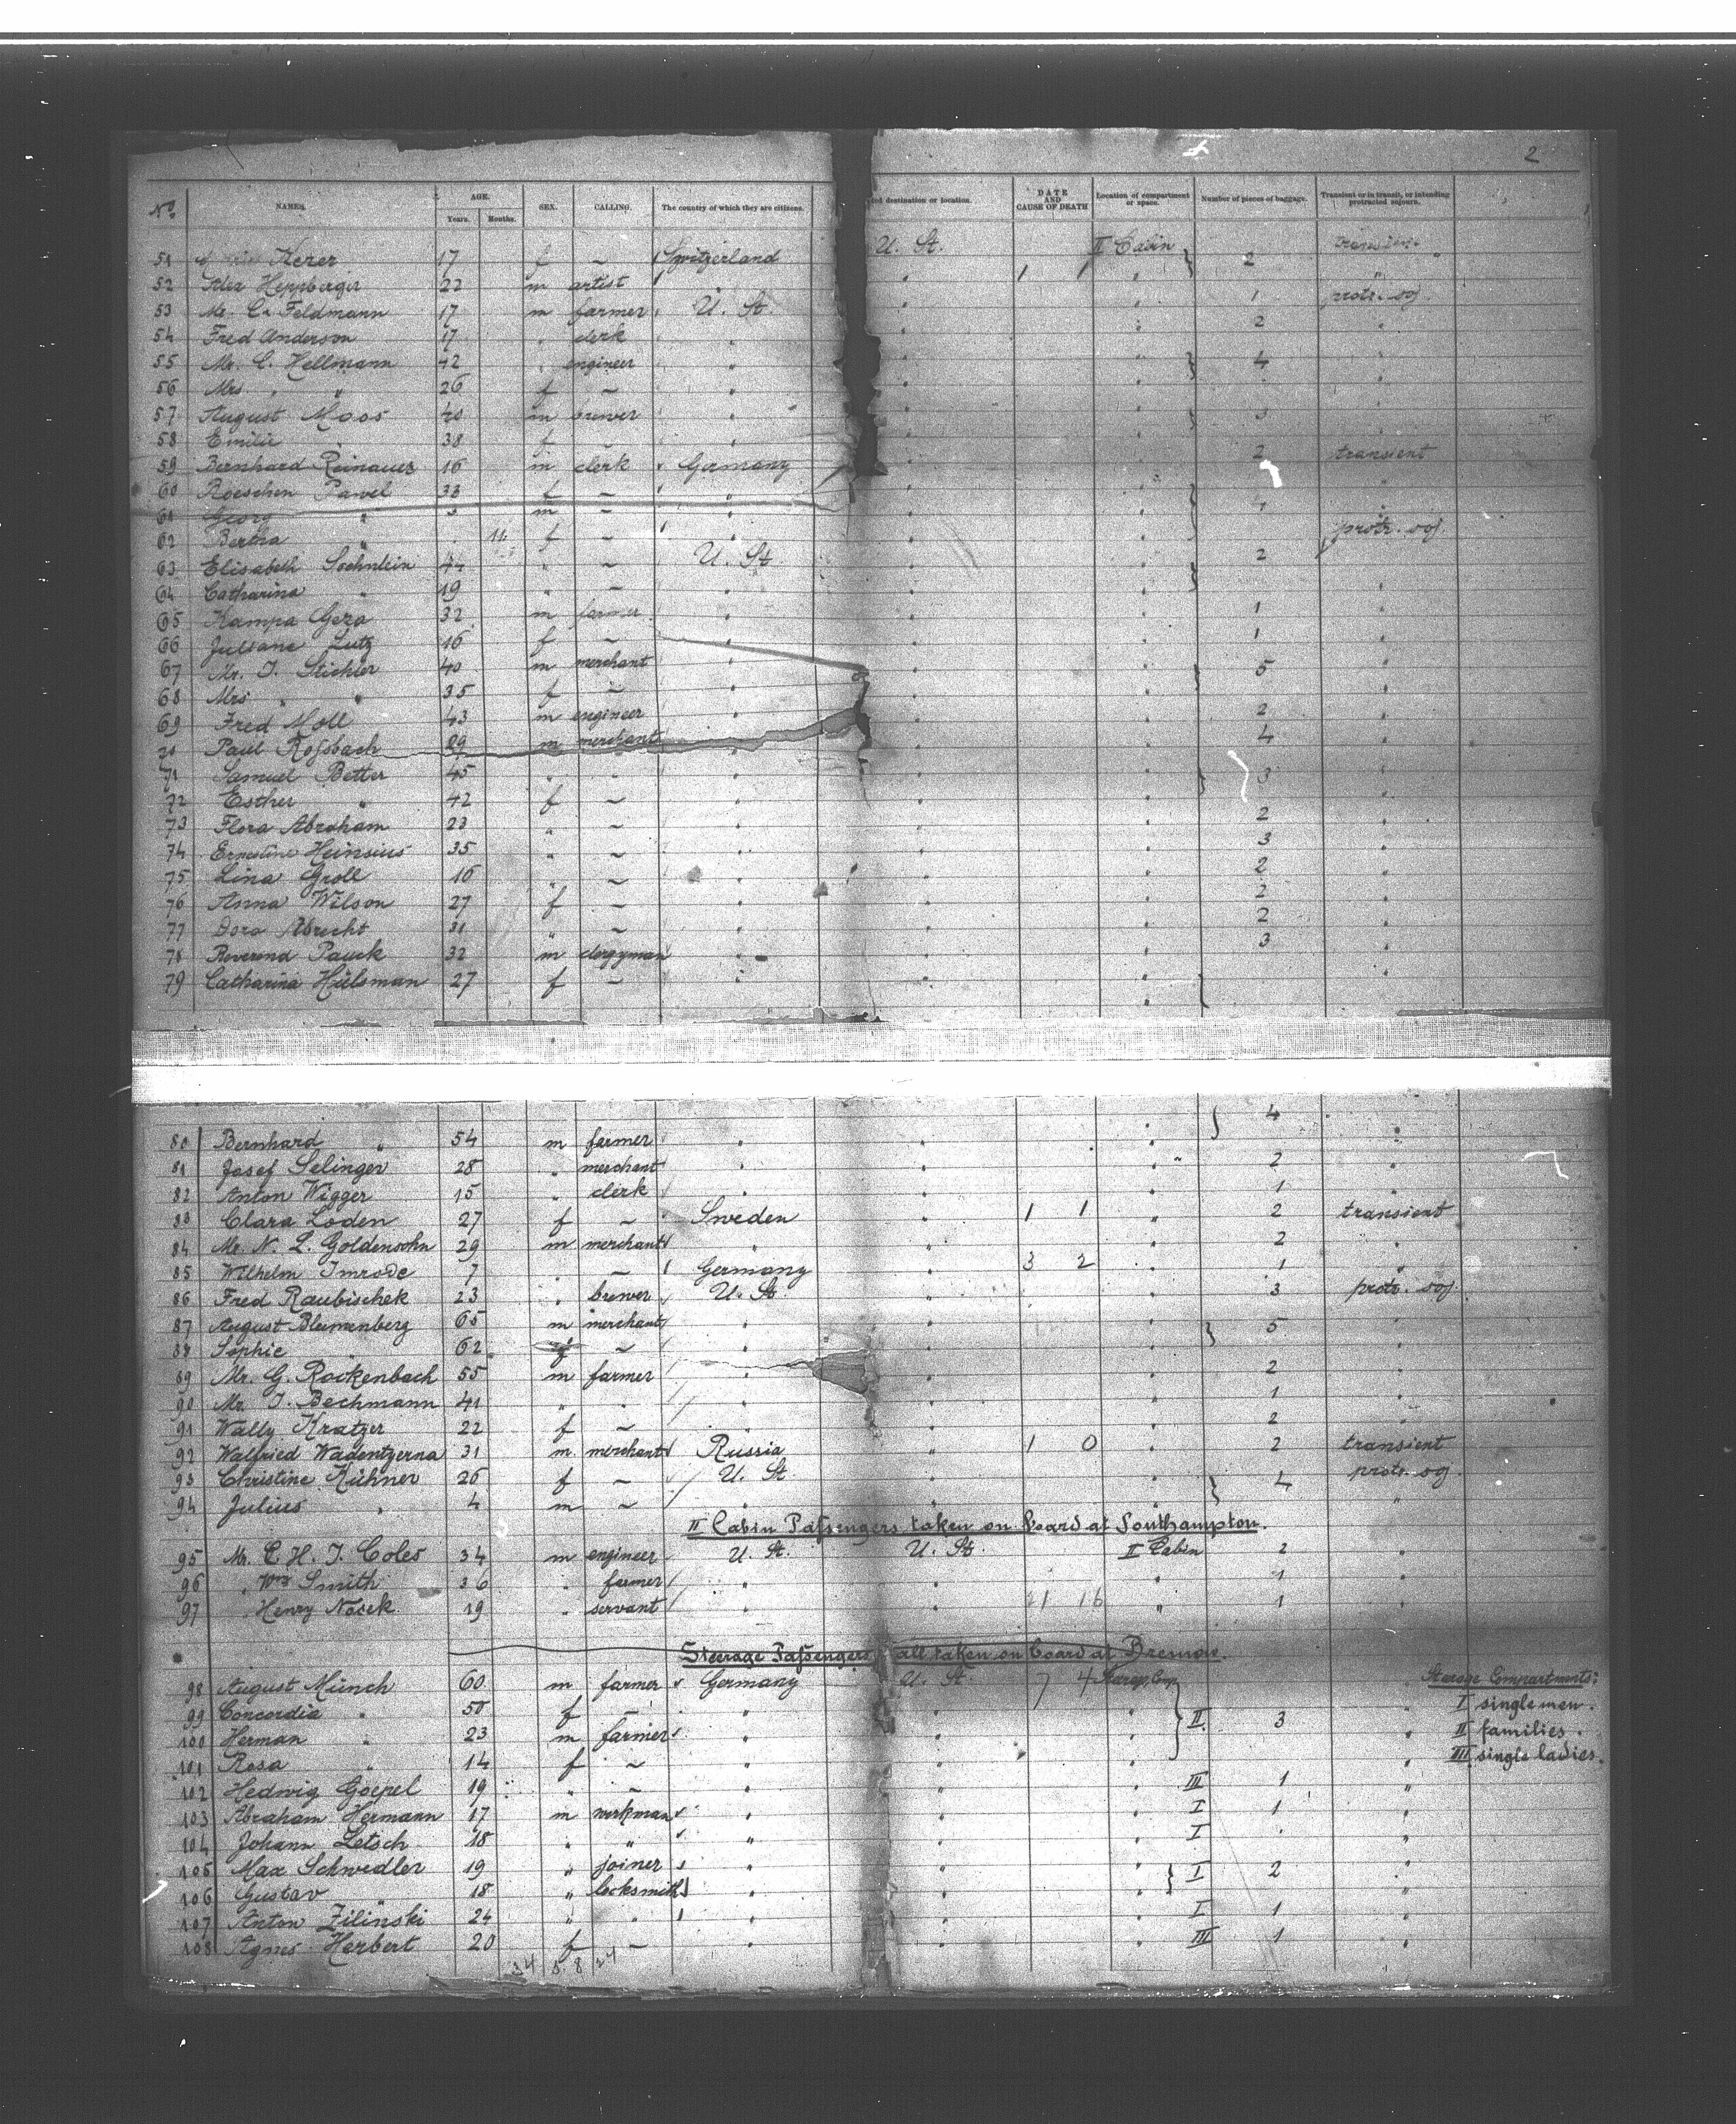 2
No. NAMES. AGE. Years. Months. SEX. CALLING. The country of which they are citizens. destination or location. DATE AND CAUSE OF DEATH Location of compartment or space. Number of pieces of baggage. Transient or in transit, or intending protracted sojourn.
51 Kerer 17 f – Switzerland U. St. II Cabin 2
52 Alex Heppberger 22 m artist " " 1 1 "
53 Mr. C. Feldmann 17 m farmer U. St. " " 1 protr. soj.
54 Fred Anderson 17 " clerk " " " 2 "
55 Mr. C. Hellmann 42 " engineer " " " 4 "
56 Mrs. " " 26 f – " " " "
57 August Moos 40 m brewer " " " "
58 Emilie " 38 f – " " "
59 Bernhard Reinauer 16 m clerk Germany " " 2 transient
60 Roeschen Pawel 33 f – " " "
61 Georg " m – " " " "
62 Bertha " 11 f – " " " protr. soj.
63 Elisabeth Soehnlein 44 " – U. St. " " 2
64 Catharina " 19 " – " " " "
65 Kampa Gera 32 m farmer " " " 1 "
66 Juliane Lutz 16 f – " " " 1 "
67 Mr. J. Stichler 40 m merchant " " " 5 "
68 Mrs. " " 35 f – " " " "
69 Fred Moll 43 m engineer " " " 2 "
70 Paul Roßbach 29 m merchant " " 4 "
71 Samuel Better 45 " " " " " 3 "
72 Esther " 42 f – " " " "
73 Flora Abraham 23 " – " " " 2 "
74 Ernestine Heinsius 35 " – " " " 3 "
75 Lina Groll 16 " – " " " 2 "
76 Anna Wilson 27 f – " " " 2 "
77 Dora Abrecht 31 " – " " " 2 "
78 Reverend Pauck 32 m clergyman " " " 3 "
79 Catharina Hülsman 27 f – " " " "
4
80 Bernhard " 54 m farmer " " " "
81 Josef Selinger 28 " merchant " " " 2 "
82 Anton Wigger 15 " clerk " " " 1 "
83 Clara Loden 27 f – Sweden " 1 1 " 2 transient
84 Mr. N. L. Goldensohn 29 m merchant " " " 2 "
85 Wilhelm Imrode 7 " – Germany " 3 2 " 1 "
86 Fred Raubischek 23 " brewer U. St. " " 3 protr. soj.
87 August Blumenberg 65 m merchant " " " 5 "
88 Sophie " 62 f – " " " "
89 Mr. G. Rockenbach 55 m farmer " " " 2 "
90 Mr. J. Bechmann 41 " " " " " 1 "
91 Wally Kratzer 22 f – " " " 2 "
92 Walfried Wadentzerna 31 m merchant Russia " 1 0 " 2 transient
93 Christine Kühner 26 f – U. St. " " 4 protr. soj.
94 Julius " 4 m – " " " "
II Cabin Paßengers taken on board at Southampton.
95 Mr. C. H. J. Coles 34 m engineer U. St. U. St. II Cabin 2 "
96 " Wm Smith 36 " farmer " " " 1 "
97 " Henry Nosek 19 " servant " " 21 16 " 1 "
Steerage Paßengers, all taken on board at Bremen.
98 August Münch 60 m farmer Germany U. St. 7 4 Steerage Comp. Steerage Compartments:
99 Concordia " 50 f – " " " II 3 " I single men.
100 Herman " 23 m farmer " " " " II families.
101 Rosa " 14 f – " " " " III single ladies.
102 Hedwig Goepel 19 " – " " " III 1 "
103 Abraham Hermann 17 m workman " " " I 1 "
104 Johann Letsch 18 " " " " " I "
105 Max Schwedler 19 " joiner " " " I 2 "
106 Gustav " 18 " locksmith " " " "
107 Anton Zilinski 24 " " " " " I 1 "
108 Agnes Herbert 20 f – " " " III 1 "
34 58 24